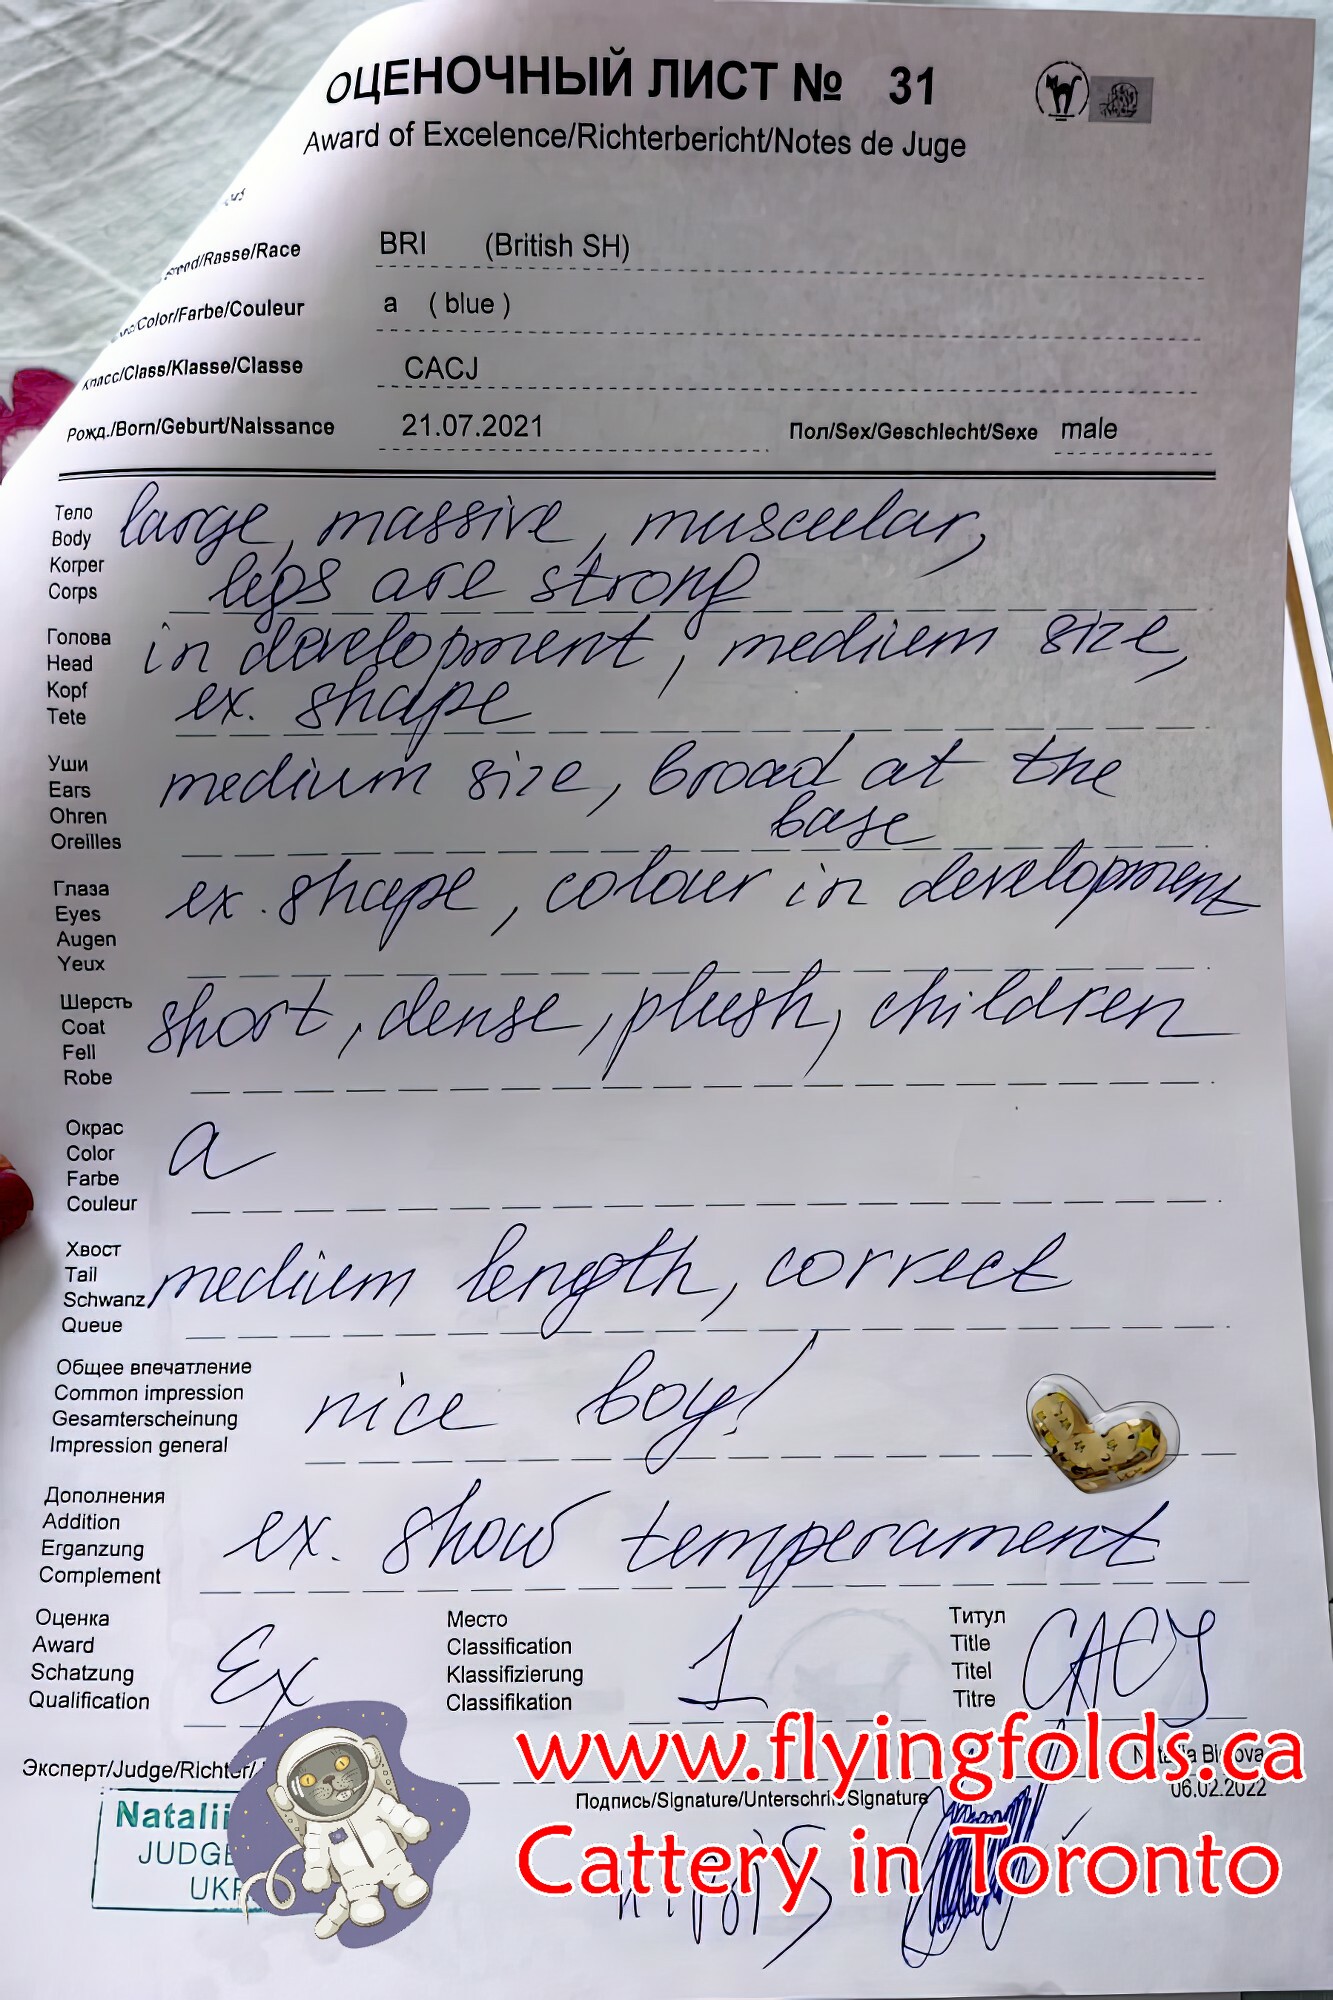 ОЦЕНОЧНЫЙ ЛИСТ № 31
Award of Excelence/Richterbericht/Notes de Juge
/Rasse/Race BRI (British SH)
/Color/Farbe/Couleur a ( blue )
Класс/Class/Klasse/Classe CACJ
Рожд./Born/Geburt/Naissance 21.07.2021 Пол/Sex/Geschlecht/Sexe male
Тело
Body
Korper
Corps
large, massive, muscular,
legs are strong
Голова
Head
Kopf
Tete
in development, medium size,
ex. shape
Уши
Ears
Ohren
Oreilles
medium size, broad at the
base
Глаза
Eyes
Augen
Yeux
ex. shape, colour in development
Шерсть
Coat
Fell
Robe
short, dense, plush, children
Окрас
Color
Farbe
Couleur
a
Хвост
Tail
Schwanz
Queue
medium length, correct
Общее впечатление
Common impression
Gesamterscheinung
Impression general
nice boy!
Дополнения
Addition
Erganzung
Complement
ex. show temperament
Оценка
Award
Schatzung
Qualification
Ex
Место
Classification
Klassifizierung
Classifikation
1
Титул
Title
Titel
Titre
CACJ
www.flyingfolds.ca
Эксперт/Judge/Richter/
06.02.2022
Подпись/Signature/Unterschrift/Signature
Natalii
JUDGE
UKR
Cattery in Toronto